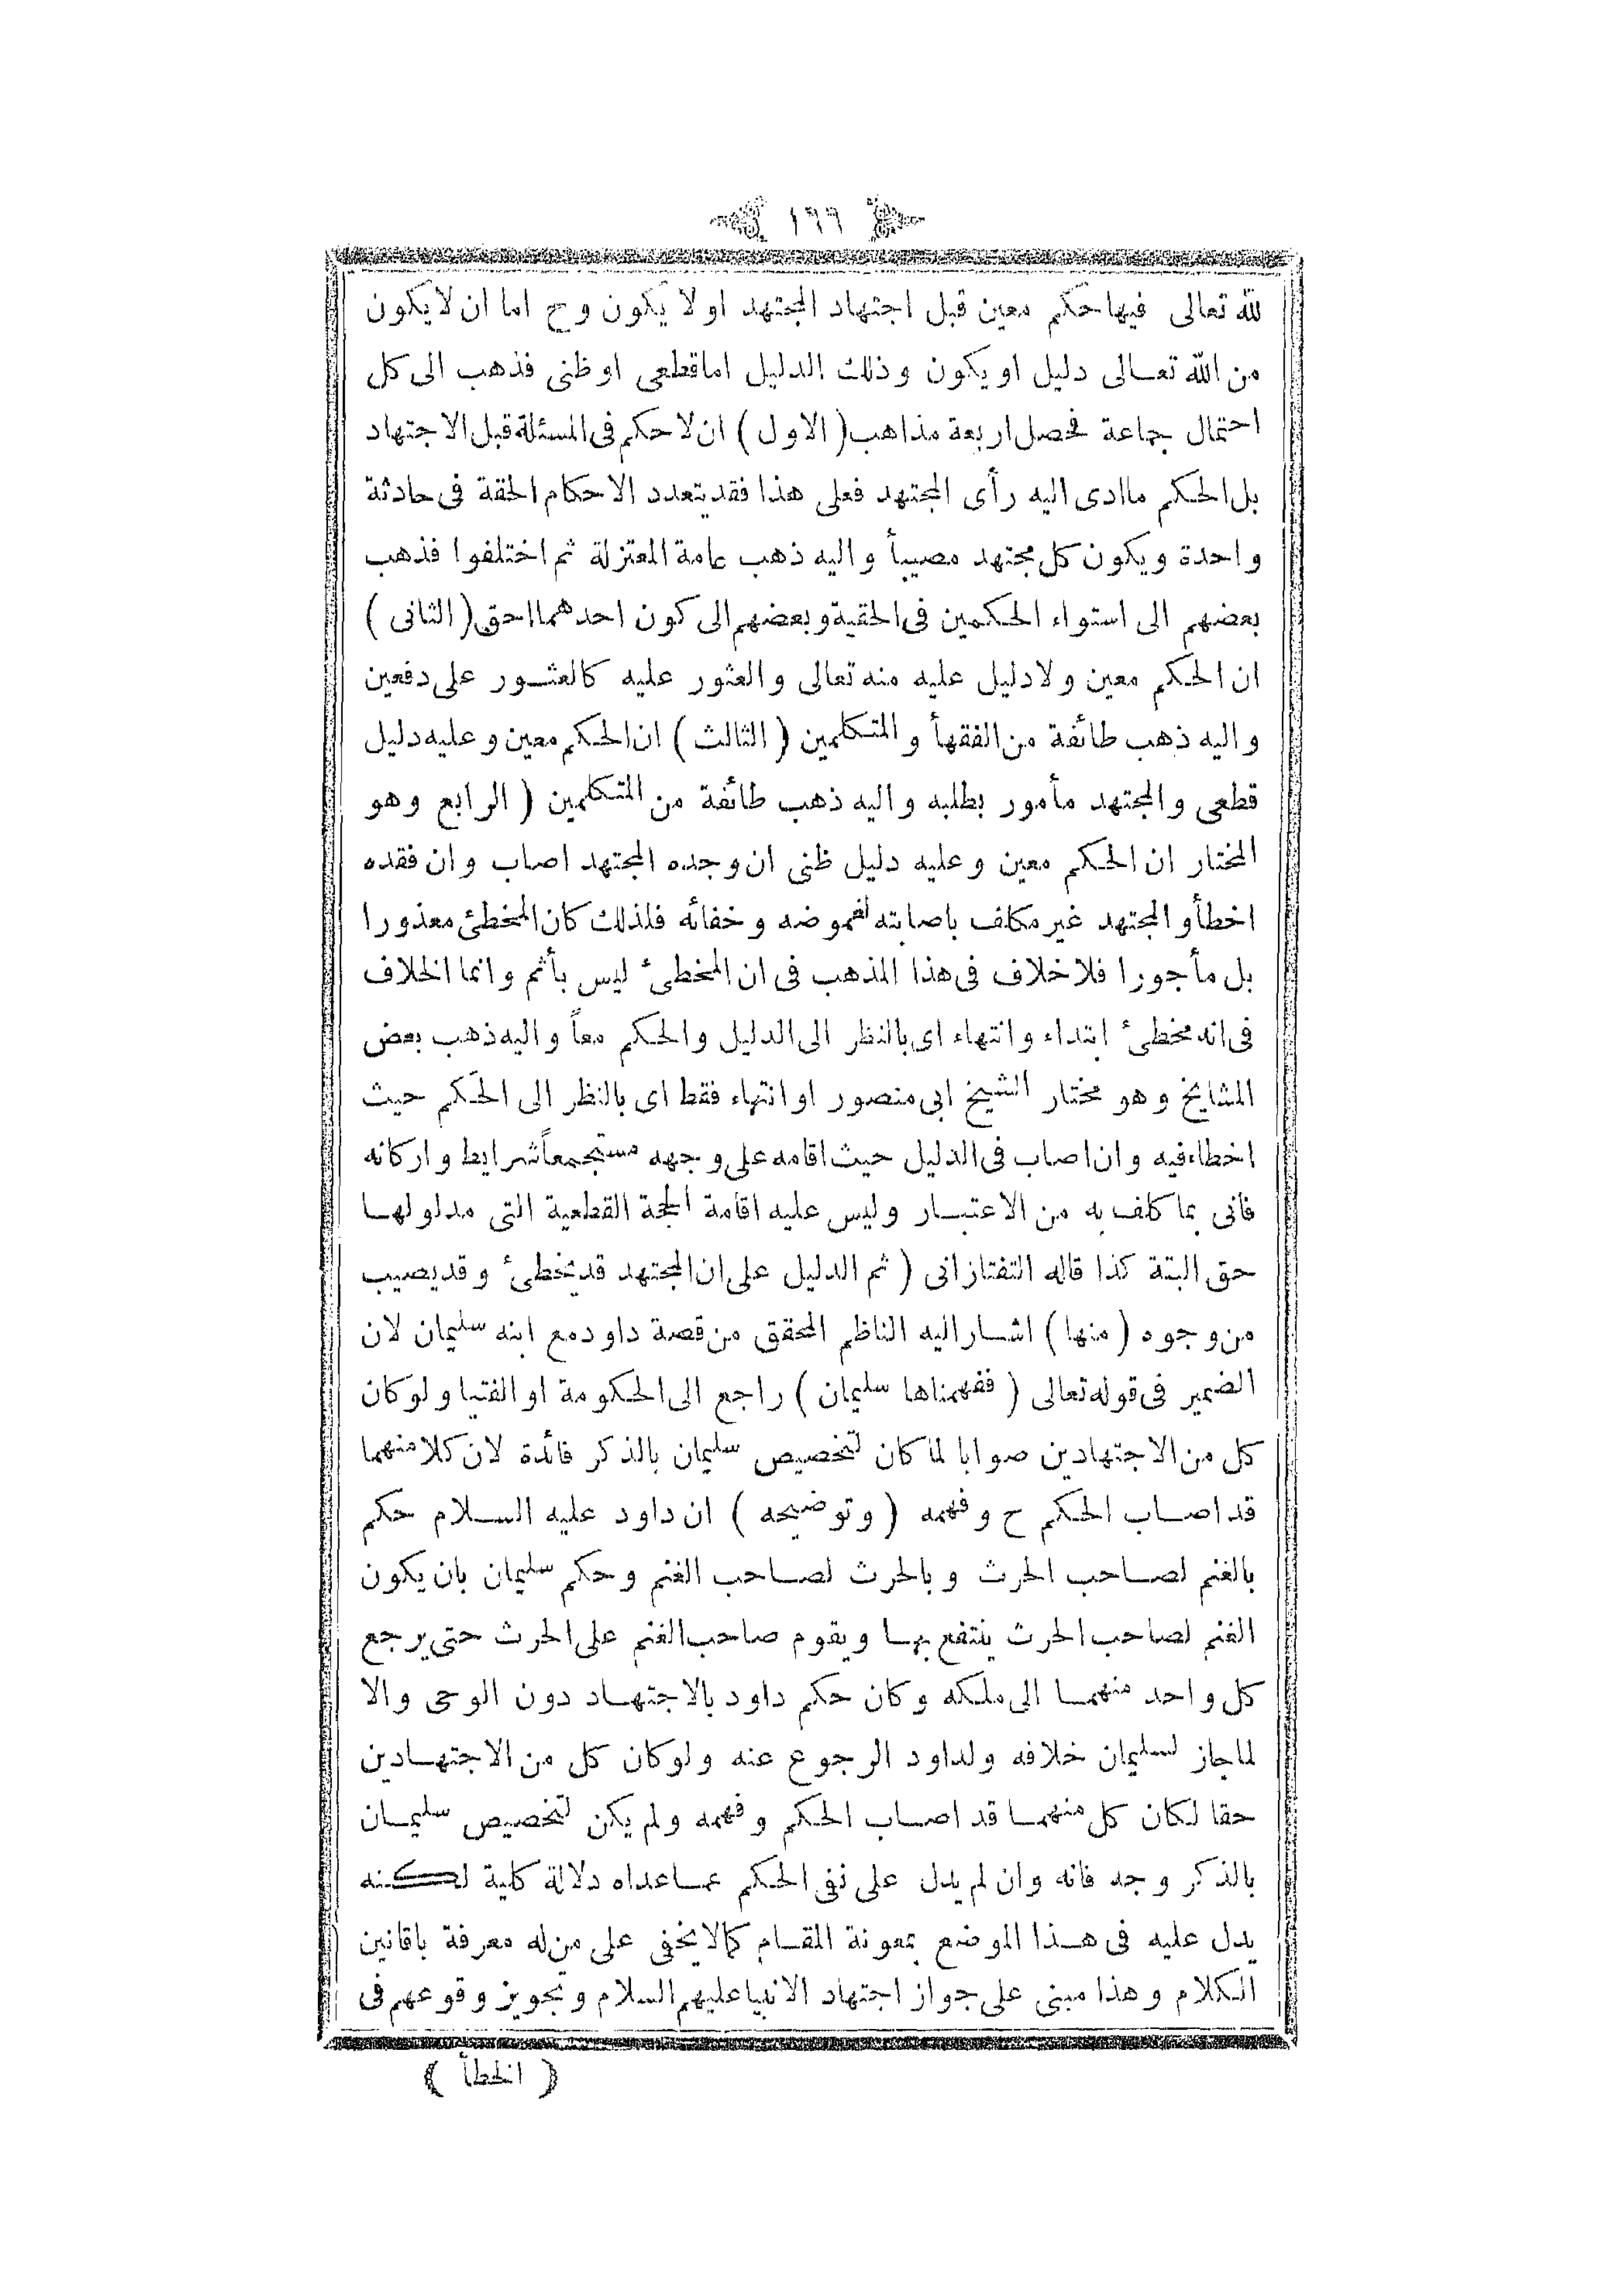 ١٦٦
لله تعالى فيها حكم معين قبل اجتهاد المجتهد او لا يكون وح اما ان لا يكون
من الله تعالى دليل او يكون وذلك الدليل اما قطعى او ظنى فذهب الى كل
احتمال جماعة فحصل اربعة مذاهب (الاول) ان لا حكم فى المسئلة قبل الاجتهاد
بل الحكم ما ادى اليه رأى المجتهد فعلى هذا فقد يتعدد الاحكام الحقة فى حادثة
واحدة ويكون كل مجتهد مصيباً واليه ذهب عامة المعتزلة ثم اختلفوا فذهب
بعضهم الى استواء الحكمين فى الحقية وبعضهم الى كون احدهما احق (الثانى)
ان الحكم معين ولا دليل عليه منه تعالى والعثور عليه كالعثور على دفين
واليه ذهب طائفة من الفقهأ والمتكلمين (الثالث) ان الحكم معين وعليه دليل
قطعى والمجتهد مأمور بطلبه واليه ذهب طائفة من المتكلمين (الرابع وهو
المختار ان الحكم معين وعليه دليل ظنى ان وجده المجتهد اصاب وان فقده
اخطأ والمجتهد غير مكلف باصابته لغموضه وخفائه فلذلك كان المخطئ معذورا
بل مأجورا فلا خلاف فى هذا المذهب فى ان المخطئ ليس بأثم وانما الخلاف
فى انه مخطئ ابتداء وانتهاء اى بالنظر الى الدليل والحكم معاً واليه ذهب بعض
المشايخ وهو مختار الشيخ ابى منصور او انتهاء فقط اى بالنظر الى الحكم حيث
اخطاء فيه وان اصاب فى الدليل حيث اقامه على وجهه مستجمعاً شرايط واركانه
فأنى بما كلف به من الاعتبار وليس عليه اقامة الحجة القطعية التى مدلولها
حق البتة كذا قاله التفتازانى (ثم الدليل على ان المجتهد قد يخطئ وقد يصيب
من وجوه (منها) اشار اليه الناظم المحقق من قصة داود مع ابنه سليمان لان
الضمير فى قوله تعالى (ففهمناها سليمان) راجع الى الحكومة او الفتيا ولو كان
كل من الاجتهادين صوابا لما كان لتخصيص سليمان بالذكر فائدة لان كلا منهما
قد اصاب الحكم ح وفهمه (وتوضيحه) ان داود عليه السلام حكم
بالغنم لصاحب الحرث وبالحرث لصاحب الغنم وحكم سليمان بان يكون
الغنم لصاحب الحرث ينتفع بها ويقوم صاحب الغنم على الحرث حتى يرجع
كل واحد منهما الى ملكه وكان حكم داود بالاجتهاد دون الوحى والا
لما جاز لسليمان خلافه ولداود الرجوع عنه ولو كان كل من الاجتهادين
حقا لكان كل منهما قد اصاب الحكم وفهمه ولم يكن لتخصيص سليمان
بالذكر وجه فانه وان لم يدل على نفى الحكم عما عداه دلالة كلية لكنه
يدل عليه فى هذا الموضع بمعونة المقام كما لا يخفى على من له معرفة باقانين
الكلام وهذا مبنى على جواز اجتهاد الانبيا عليهم السلام وتجويز وقوعهم فى
(الخطأ)